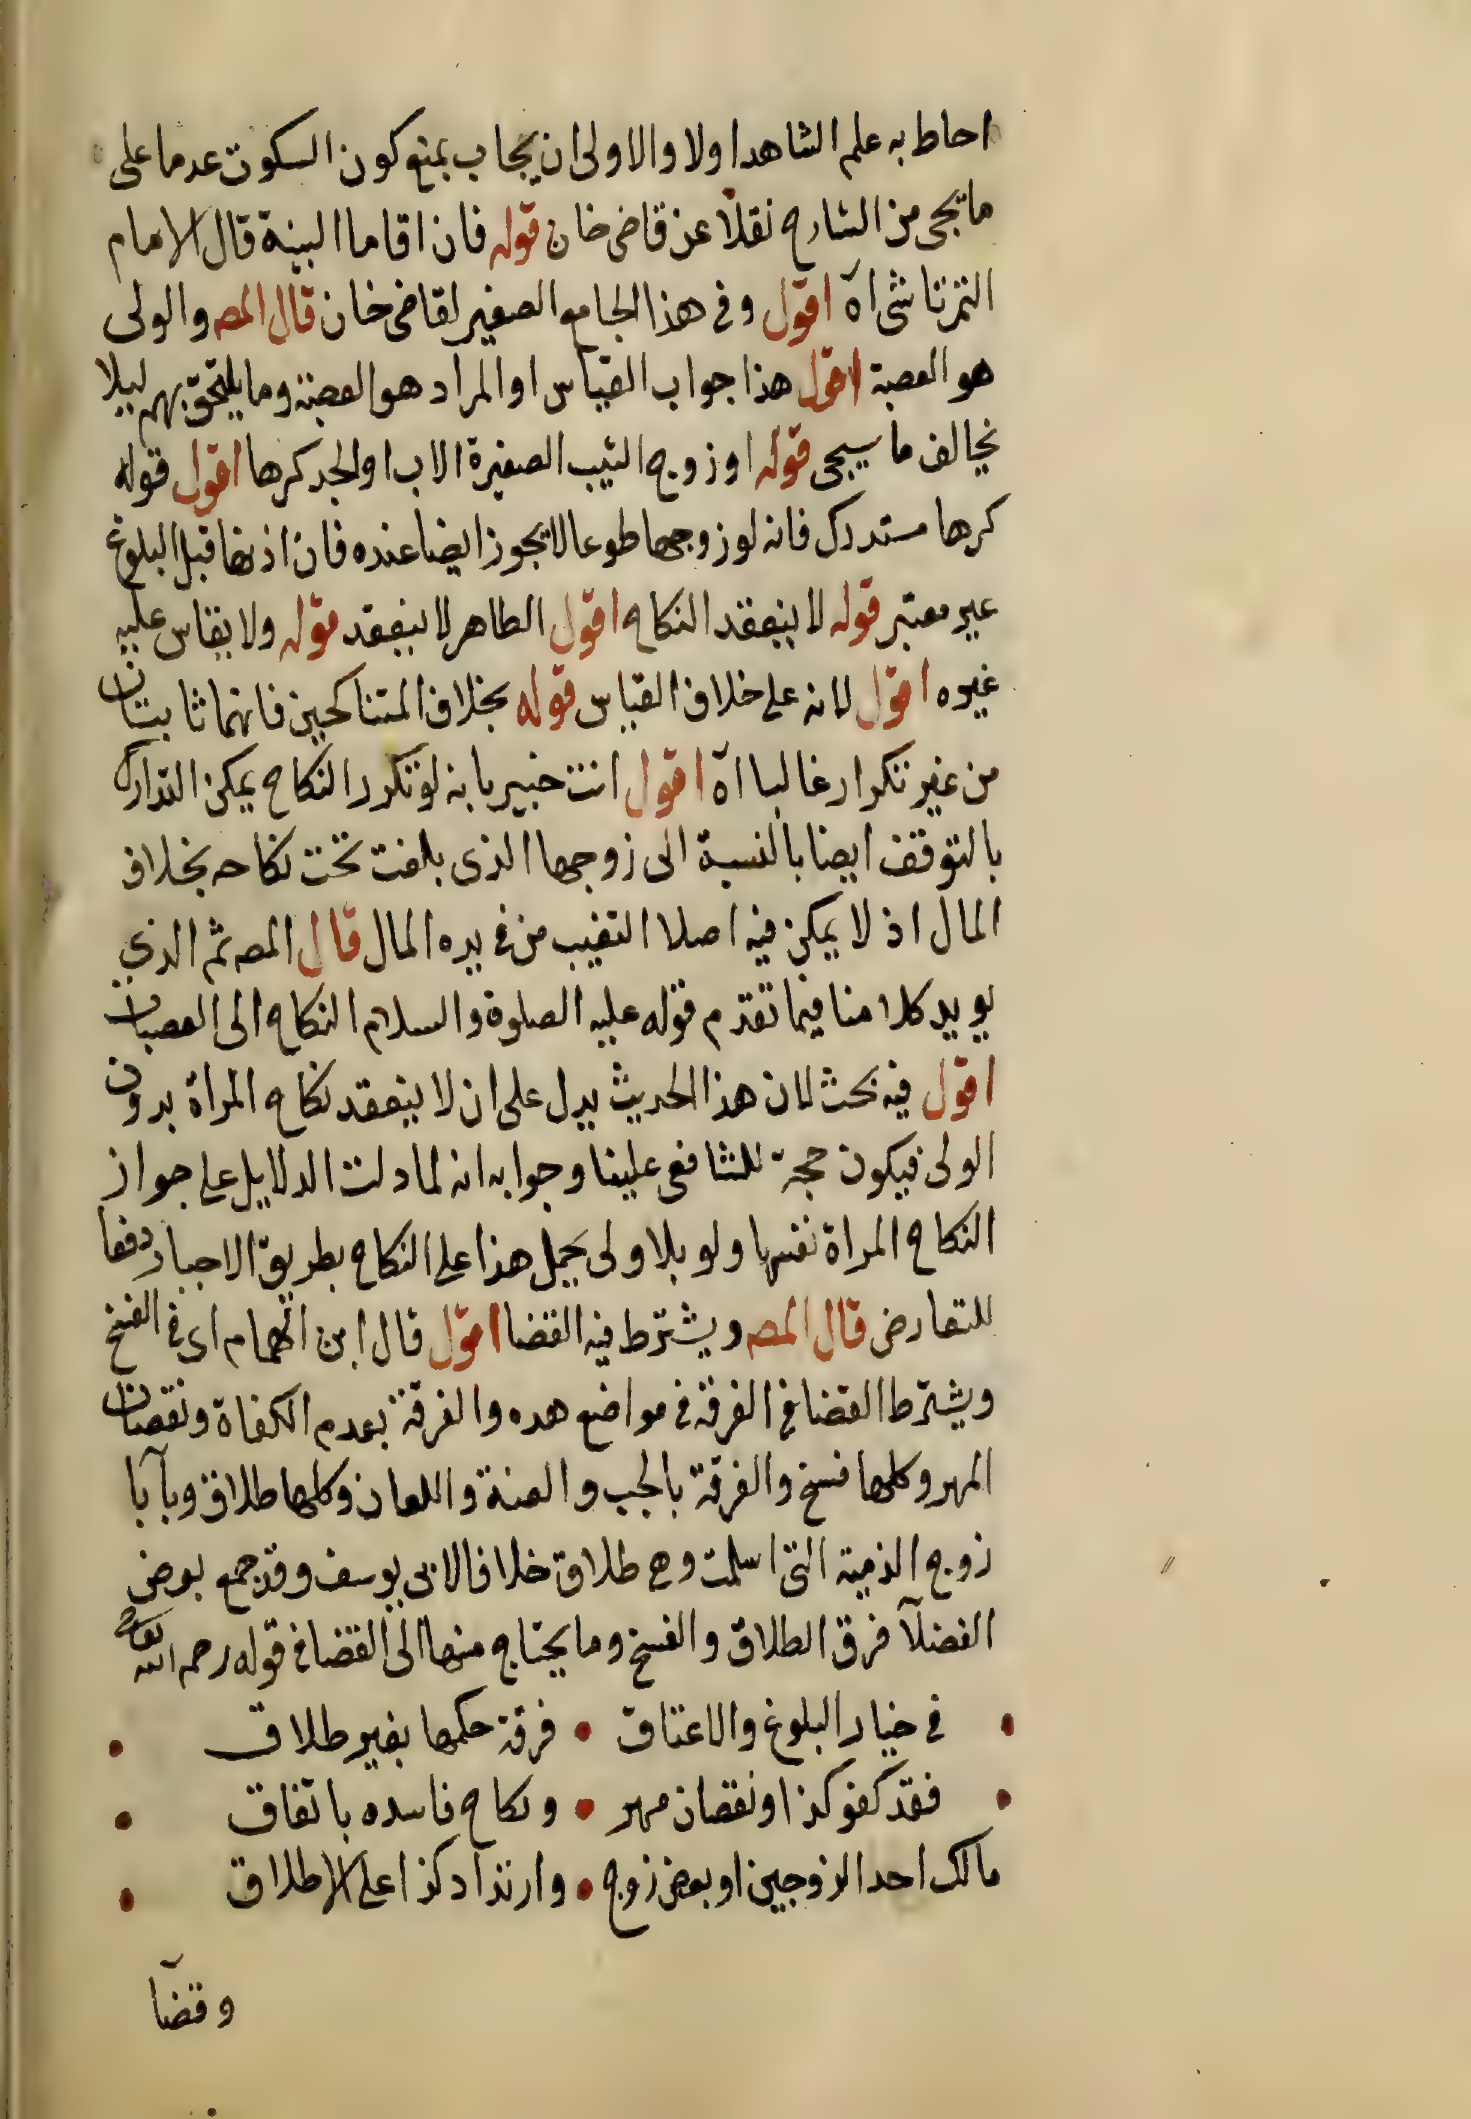 احاط به علم الشاهد اولا والاولى ان يجاب بمنع كون السكوت عدما على
ما يجى من الشارح نقلا عن قاضى خان قوله فان اقاما البينة قال الامام
التمرتاشى اه اقول وفى هذا الجامع الصغير لقاضى خان قال المص والولى
هو العصبة اقول هذا جواب القياس او المراد هو العصبة وما يلتحق بهم ليلا
يخالف ما سيجى قوله او زوج الثيب الصغيرة الاب او الجد كرها اقول قوله
كرها مستدرك فانه لو زوجها طوعا لا يجوز ايضا عنده فان اذنها قبل البلوغ
غير معتبر قوله لا ينعقد النكاح اقول الظاهر لا ينفقد قوله ولا يقاس عليه
غيره اقول لانه على خلاف القياس قوله بخلاف المتناكحين فانهما ثابتان
من غير تكرار غالبا اه اقول انت خبير بانه لو تكرر النكاح يمكن التدارك
بالتوقف ايضا بالنسبة الى زوجها الذى بلغت تحت نكاحه بخلاف
المال اذ لا يمكن فيه اصلا التغيب من فى يده المال قال المص ثم الذي
يويد كلامنا فيما تقدم قوله عليه الصلوة والسلام النكاح الى العصبات
اقول فيه بحث لان هذا الحديث يدل على ان لا ينعقد نكاح المراة بدون
الولى فيكون حجة للشافعى علينا وجوابه انه لما دلت الدلايل على جواز
النكاح المراة نفسها ولو بلا ولى يحمل هذا على النكاح بطريق الاجبار دفعا
للتعارض قال المص ويشترط فيه القضا اقول قال ابن الهمام اى فى الفتح
ويشترط القضا فى الفرقة فى مواضع هده والفرقة بعدم الكفاة ونقصان
المهر وكلها فسخ والفرقة بالجب والعنة واللعان وكلها طلاق وبآبا
زوج الذمية التى اسلمت وهى طلاق خلافا لابى يوسف وقد جمع بعض
الفضلآ فرق الطلاق والفسخ وما يحتاج منها الى القضا فى قوله رحمه الله تعالى
• فى خيار البلوغ والاعتاق • فرقة حكمها بغير طلاق •
• فقد كفو كذا ونقصان مهر • ونكاح فاسده باتفاق •
مالك احد الزوجين او بعض زوج • وارتداد كذا على الاطلاق •
وقضآ